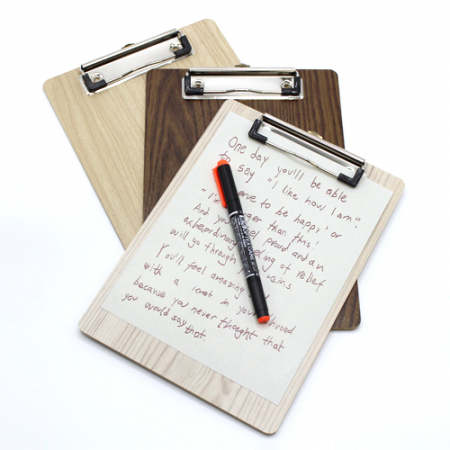 One day you'll be able
to say "i like how I am"
to be happy' or
than this'
And you feel proud and an
extraordinary of relief
will go through veins
You'll feel amazing
with a knot in your
because you never thought that
you would say that.